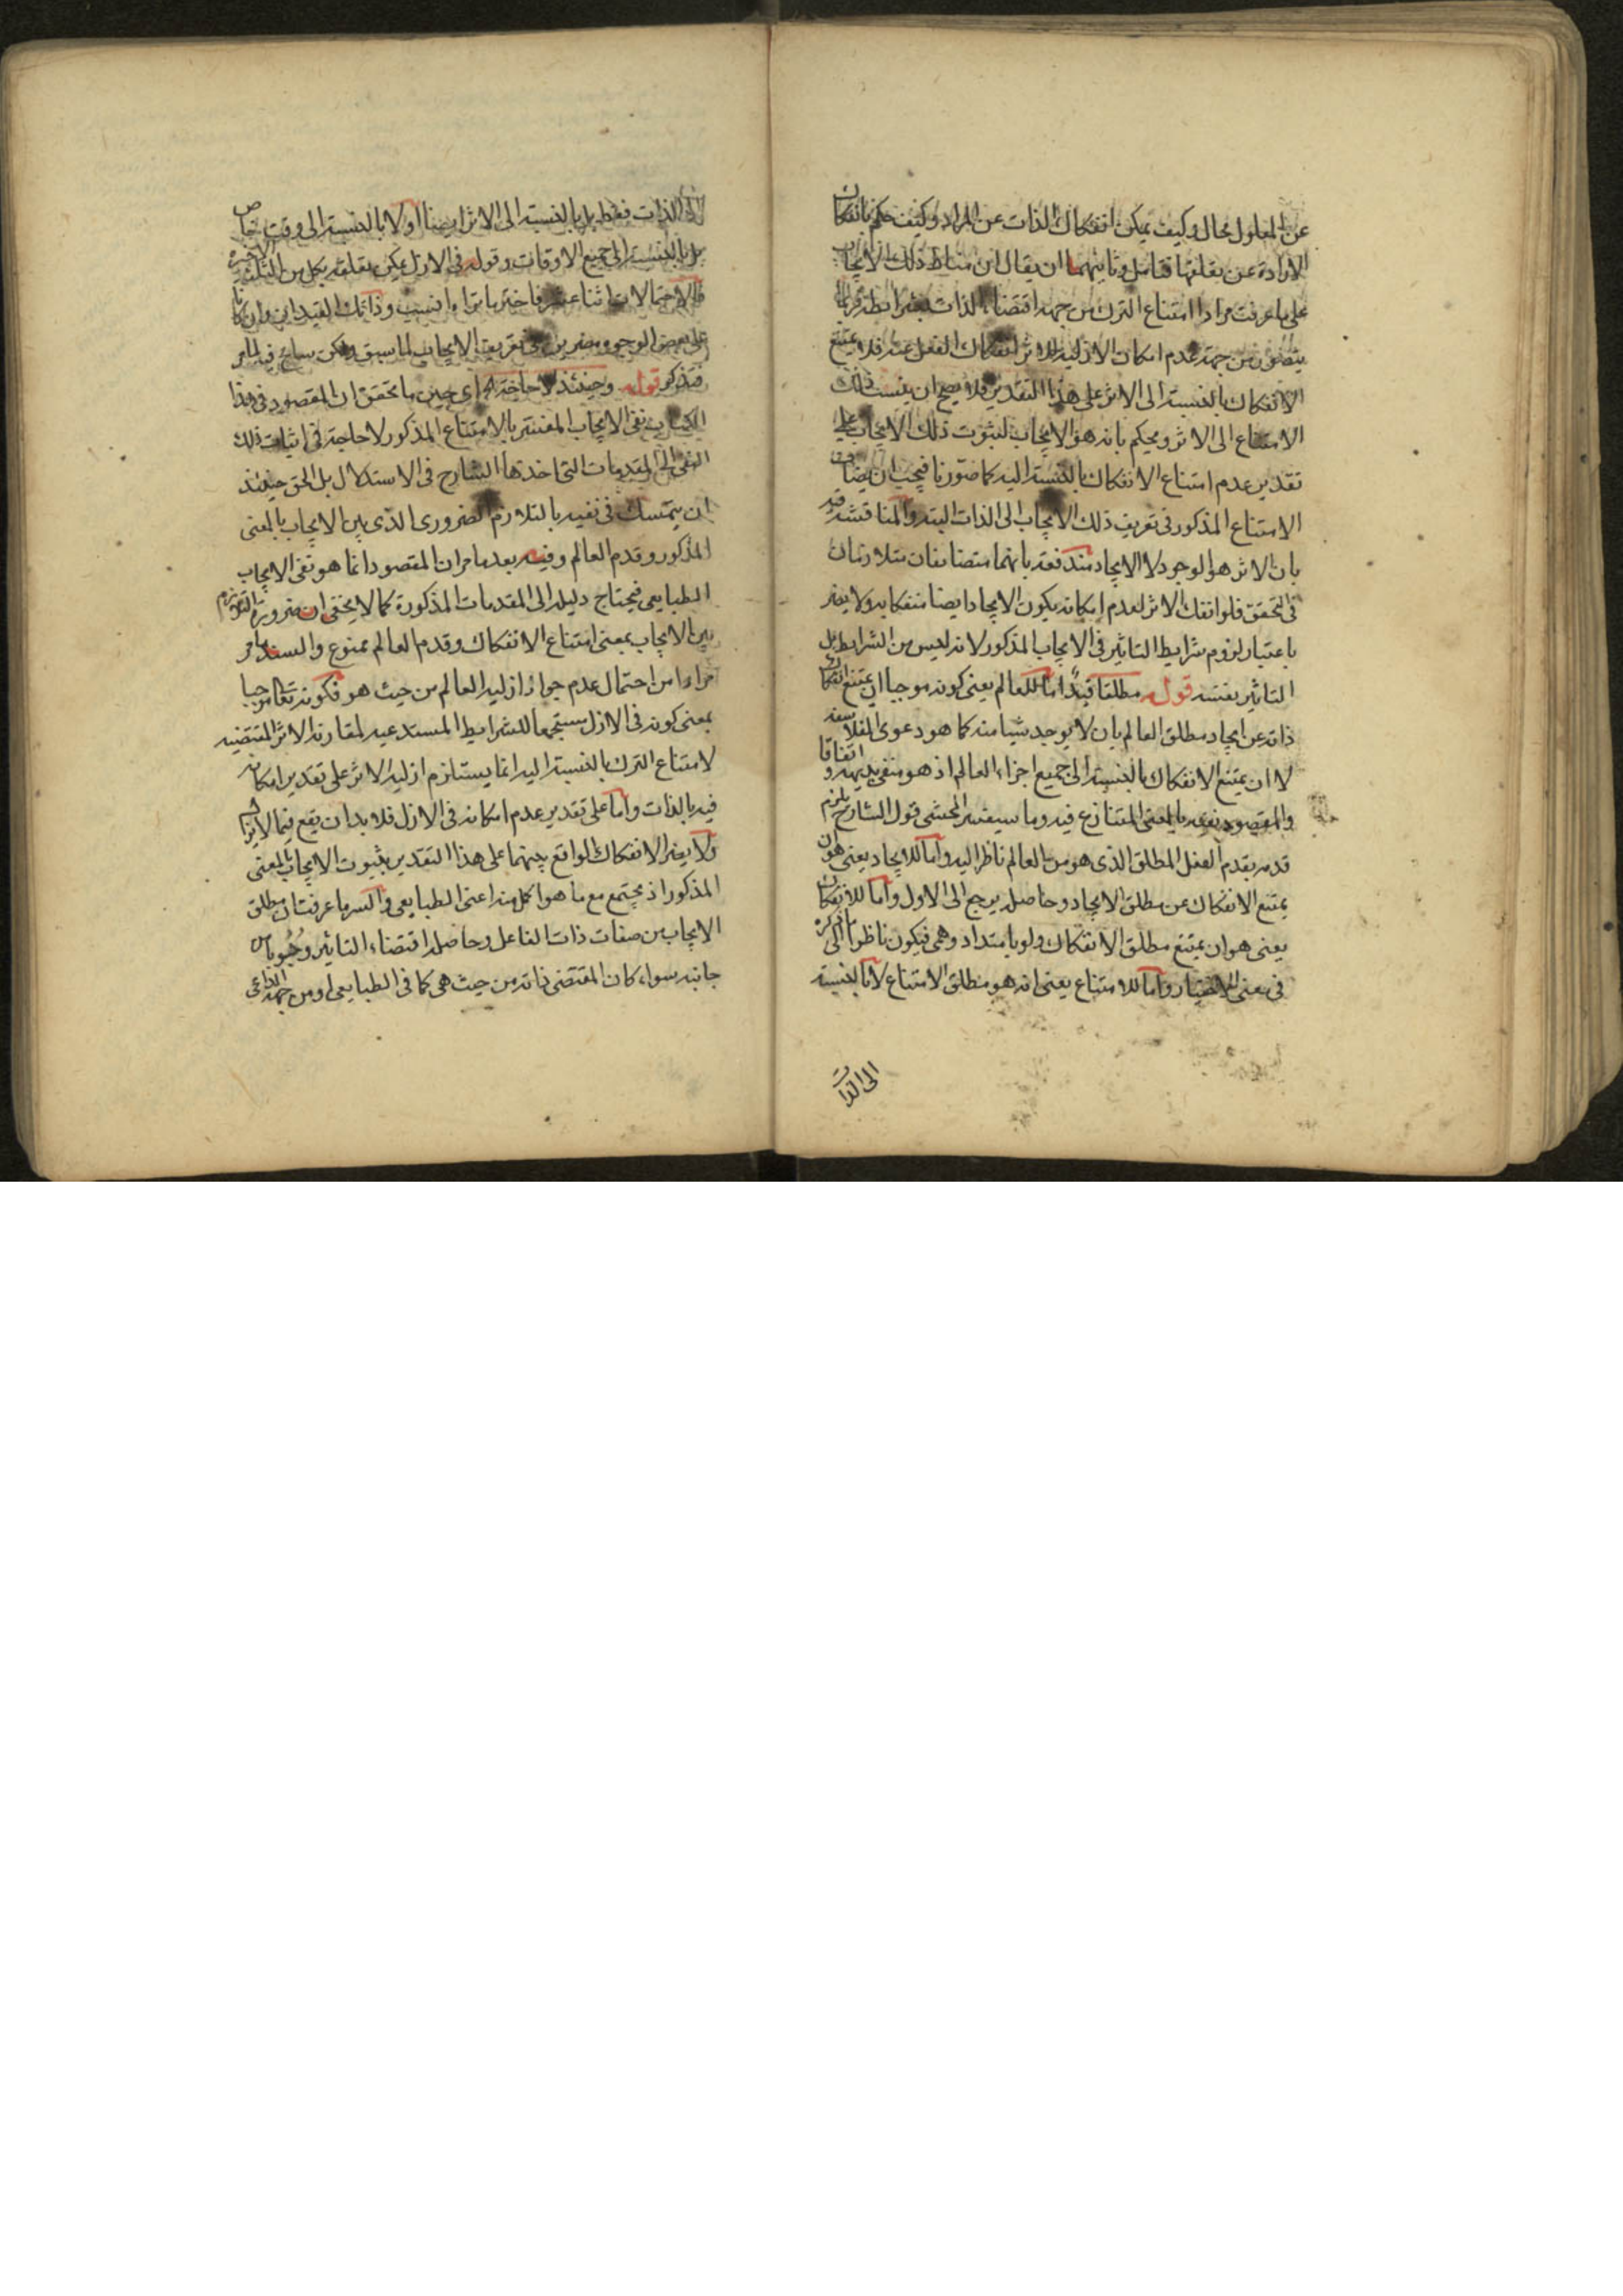 عن المعلول محال وكيف يمكن انفكاك الذات عن المراد وكيف حكم بانفكاك
الارادة عن تعلقها فتامل وثانيهما ان يقال ان مناط ذلك الايجاب
على ما عرفت مرارا امتناع الترك من جهة اقتضاء الذات بشرائطه فربما
يتصور من جهة عدم امكان الازلية للاثر انفكاك الفعل عنه فلا يمتنع
الانفكاك بالنسبة الى الاثر على هذا التقدير فلا يصح ان ينسب ذلك
الامتناع الى الاثر ويحكم بانه هو الايجاب لثبوت ذلك الايجاب على
تقدير عدم امتناع الانفكاك بالنسبة اليه كما صورنا فيجب ان يضاف
الامتناع المذكور فى تعريف ذلك الايجاب الى الذات البتة والمناقشة فيه
بان الاثر هو الوجود لا الايجاد مندفعة بانهما متضايفان متلازمان
فى التحقق فلو انفك الاثر لعدم امكانه يكون الايجاد ايضا منفكا به ولا يضر
باعتبار لزوم شرايط التاثير فى الايجاب المذكور لانه ليس من الشرايط بل
التاثير بنفسه قوله مطلقا قيد اما للعالم يعنى كونه موجبا ان يمتنع انفكاك
ذاته عن ايجاد مطلق العالم بان لا يوجد شيئا منه كما هو دعوى الفلاسفة
لا ان يمتنع الانفكاك بالنسبة الى جميع اجزاء العالم اذ هو منفى بديهة واتفاقا
والمقصود نفيه بالمعنى المتنازع فيه وما سيفسر المحشى قول الشارح يلزم
قدمه بقدم الفعل المطلق الذى هو من العالم ناظر اليه واما للايجاد يعنى هو ان
يمتنع الانفكاك عن مطلق الايجاد وحاصله يرجع الى الاول واما للانفكاك
يعنى هو ان يمتنع مطلق الانفكاك ولو بامتداد وهمى فيكون ناظرا الى ما ذكره
فى معنى الاختيار واما للامتناع يعنى انه هو مطلق الامتناع لا بالنسبة
الى الذات
الى الذات فقط بل بالنسبة الى الاثر ايضا او لا بالنسبة الى وقت خاص
بل بالنسبة الى جميع الاوقات وقوله فى الازل يمكن تعلقه بكل من الثلثة الاخيرة
فالاحتمالات اثنا عشر فاختر ما تراه انسب وذانك القيدان وان كانا
على بعض الوجوه مضرين فى تعريف الايجاب لما سبق ولكن يسامح فيه لما مر
فتذكر قوله وحينئذ لا حاجة اى حين ما تحقق ان المقصود فى هذا
الكتاب نفى الايجاب المفسر بالامتناع المذكور لا حاجة فى اثبات ذلك
النفى الى المقدمات التى اخذتها الشارح فى الاستدلال بل الحق حينئذ
ان يتمسك فى نفيه بالتلازم الضرورى الذى بين الايجاب بالمعنى
المذكور وقدم العالم وفيه بعد ما مر ان المقصود انما هو نفى الايجاب
الطبايعى فيحتاج دليله الى المقدمات المذكورة كما لا يخفى ان ضرورة التلازم
بين الايجاب بمعنى امتناع الانفكاك وقدم العالم ممنوع والسند ما مر
مرارا من احتمال عدم جواز ازلية العالم من حيث هو فكونه تعالى موجبا
بمعنى كونه فى الازل مستجمعا للشرايط المستدعية لمقارنة الاثر المقتضية
لامتناع الترك بالنسبة اليه انما يستلزم ازلية الاثر على تقدير امكانه
فيه بالذات واما على تقدير عدم امكانه فى الازل فلا بد ان يقع فيما لا يزال
ولا يضر الانفكاك الواقع بينهما على هذا التقدير بثبوت الايجاب بالمعنى
المذكور اذ مجتمع مع ما هو اكمل منه اعنى الطبايعى والسر ما عرفت ان مطلق
الايجاب من صفات ذات الفاعل وحاصله اقتضاء التاثير وجوبا من
جانبه سواء كان المقتضى ذاته من حيث هى كما فى الطبايعى او من جهة الداعى